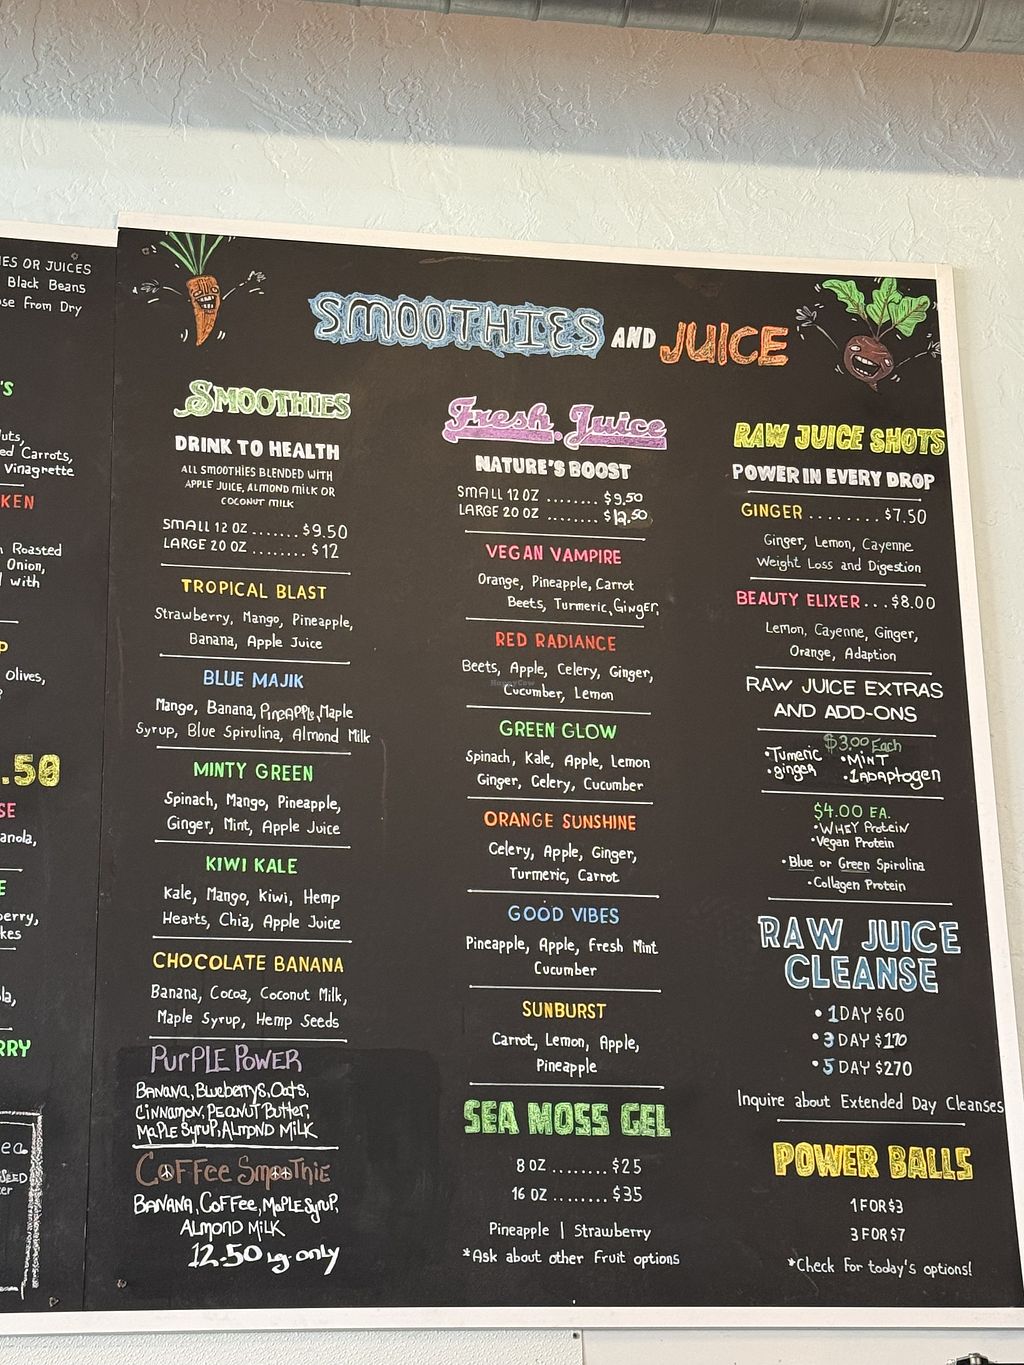 IES OR JUICES
Black Beans
ose from Dry
'S
uts,
ed Carrots,
Vinagrette
KEN
Roasted
Onion,
with
P
Olives,
.50
SE
anola,
E
berry,
kes
la,
RRY
ea.
SEED
ter
SMOOTHIES AND JUICE
SMOOTHIES
DRINK TO HEALTH
ALL SMOOTHIES BLENDED WITH
APPLE JUICE, ALMOND MILK OR
COCONUT MILK
SMALL 12 OZ ...... $9.50
LARGE 20 OZ ........ $12
TROPICAL BLAST
Strawberry, Mango, Pineapple,
Banana, Apple Juice
BLUE MAJIK
Mango, Banana, PineAPPle, Maple
Syrup, Blue Spirulina, Almond Milk
MINTY GREEN
Spinach, Mango, Pineapple,
Ginger, Mint, Apple Juice
KIWI KALE
Kale, Mango, Kiwi, Hemp
Hearts, Chia, Apple Juice
CHOCOLATE BANANA
Banana, Cocoa, Coconut Milk,
Maple Syrup, Hemp Seeds
PurPLE POWER
BANANA, BlueberrYs, Oats,
CiNNAMON, PEANUT Butter,
MAPLE SyruP, ALMOND MILK
CoFFee SmooThiE
BANANA, CoFFee, MAPLE SyruP,
ALMOND MiLK
12.50 lg. only
Fresh Juice
NATURE'S BOOST
SMALL 12 OZ ........ $9.50
LARGE 20 OZ ........ $12.50
VEGAN VAMPIRE
Orange, Pineapple, Carrot
Beets, Turmeric, GiNger,
RED RADIANCE
Beets, Apple, Celery, Ginger,
Cucumber, Lemon
HappyCow
GREEN GLOW
Spinach, Kale, Apple, Lemon
Ginger, Celery, Cucumber
ORANGE SUNSHINE
Celery, Apple, Ginger,
Turmeric, Carrot
GOOD VIBES
Pineapple, Apple, Fresh Mint
Cucumber
SUNBURST
Carrot, Lemon, Apple,
Pineapple
SEA MOSS GEL
8 OZ ........ $25
16 OZ ........ $35
Pineapple | Strawberry
*Ask about other Fruit options
RAW JUICE SHOTS
POWER IN EVERY DROP
GINGER ........ $7.50
Ginger, Lemon, Cayenne
Weight Loss and Digestion
BEAUTY ELIXER ... $8.00
Lemon, Cayenne, Ginger,
Orange, Adaption
RAW JUICE EXTRAS
AND ADD-ONS
$3.00 Each
•Tumeric •MiNT
•ginger •1ADAPtogen
$4.00 EA.
•WHEY Protein
•Vegan Protein
•Blue or Green Spirulina
•Collagen Protein
RAW JUICE
CLEANSE
• 1 DAY $60
• 3 DAY $170
• 5 DAY $270
Inquire about Extended Day Cleanses
POWER BALLS
1 FOR $3
3 FOR $7
*Check For today's options!